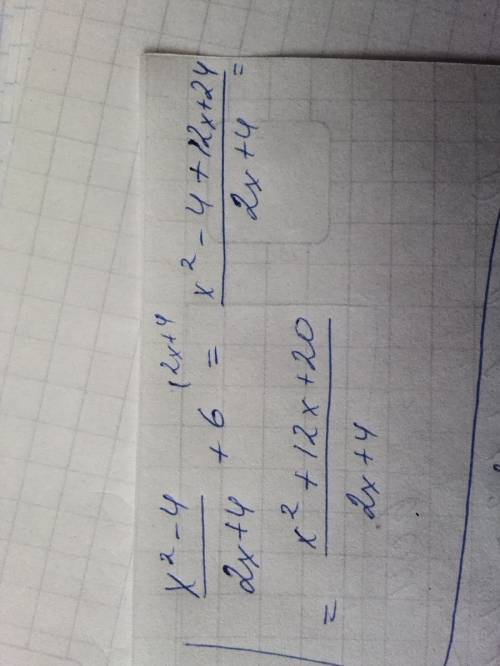 (x² - 4)/(2x + 4) + 6 (2x+4 = (x² - 4 + 12x + 24)/(2x + 4) =
= (x² + 12x + 20)/(2x + 4)